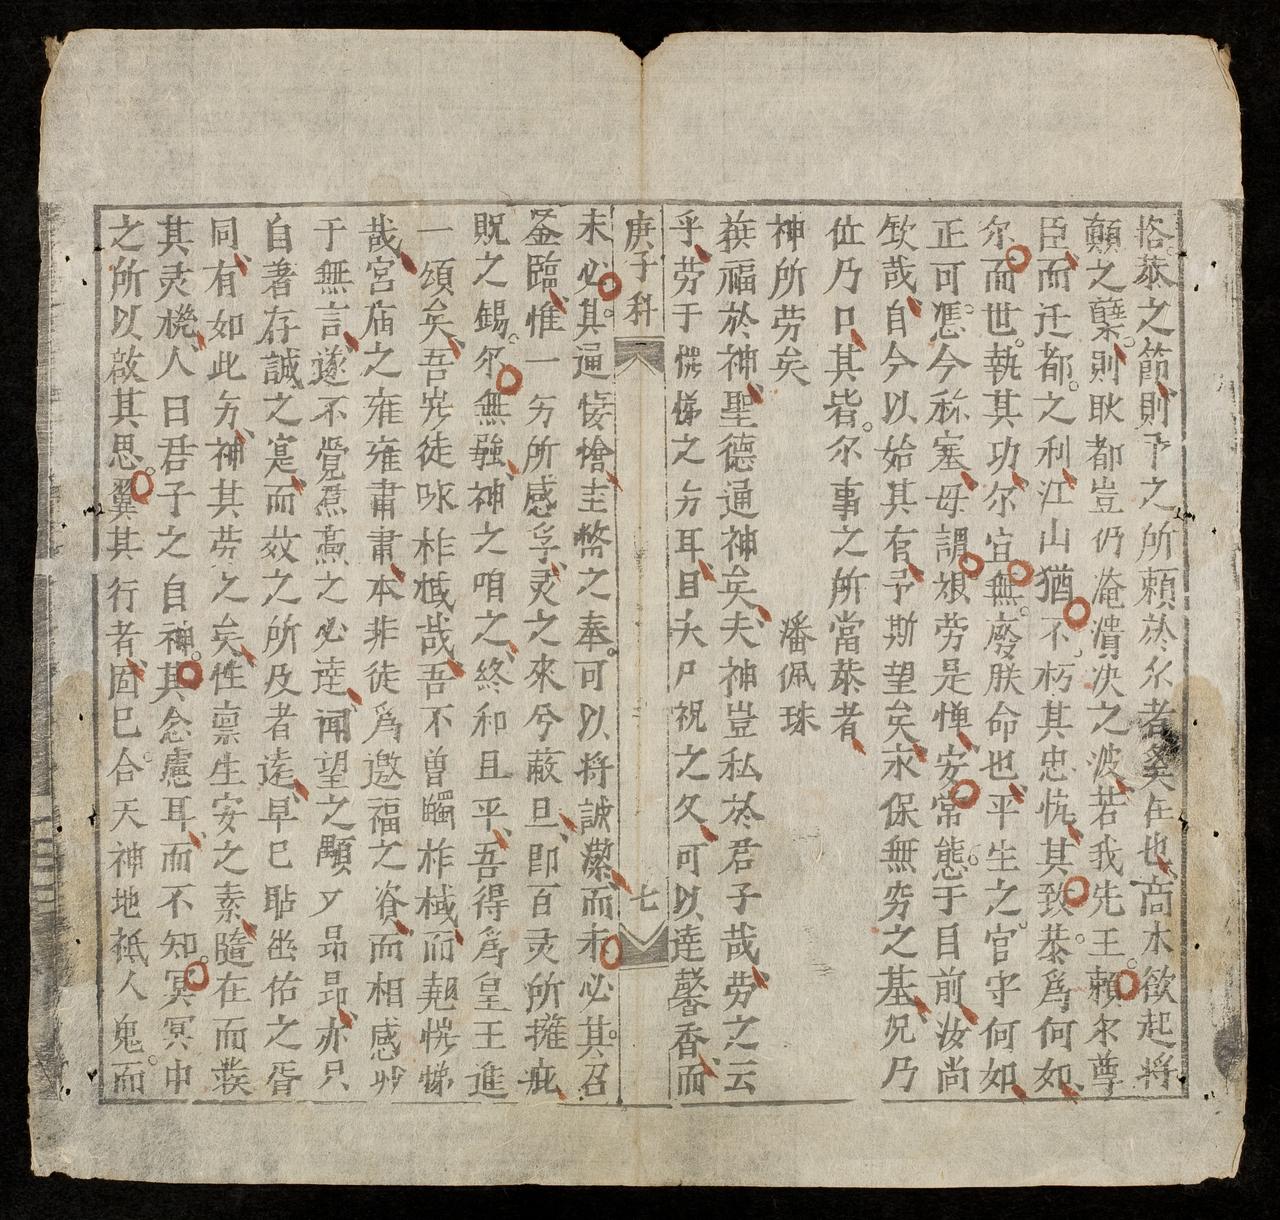 恪恭之節則予之所賴於尒者奚在也商木欲起將
顛之櫱則耿都豈仍淹潰决之波若我先王賴尔尊
臣而迁都之利江山猶不朽其忠忱其致恭爲何如
尔而世執其功尔宜無廢朕命也平生之官守何如
正可慿今称塞毋謂艰劳是惮安常態于目前汝尚
欽哉自今以始其有予斯望矣永保無穷之基况乃
位乃口其皆尔事之所當恭者
神所劳矣
潘佩珠
获福於神聖德通神矣夫神豈私於君子哉劳之云
乎劳于愷悌之身耳且夫尸祝之久可以達馨香而
庚子科
七
未必其逼悽憯圭幣之奉可以将誠潔而未必其召
釜臨惟一身所感孚灵之來兮蔽旦即百灵所擁庇
貺之錫尔無彊神之响之終和且平吾得爲皇王進
一頌矣吾岂徒咏柞棫哉吾不曾矚柞棫而覩愷悌
哉宮庙之雍雍肅肅本非徒爲邀福之資而相感妙
于無言遂不覺焄蒿之必達闻望之顒顒昂昂亦只
自著存誠之寔而效之所及者遠早已貼幽佑之胥
同有如此身神其劳之矣性禀生安之素隨在而获
其灵機人曰君子之自神其念慮耳而不知冥冥中
之所以啟其思翼其行者固已合天神地祗人鬼而